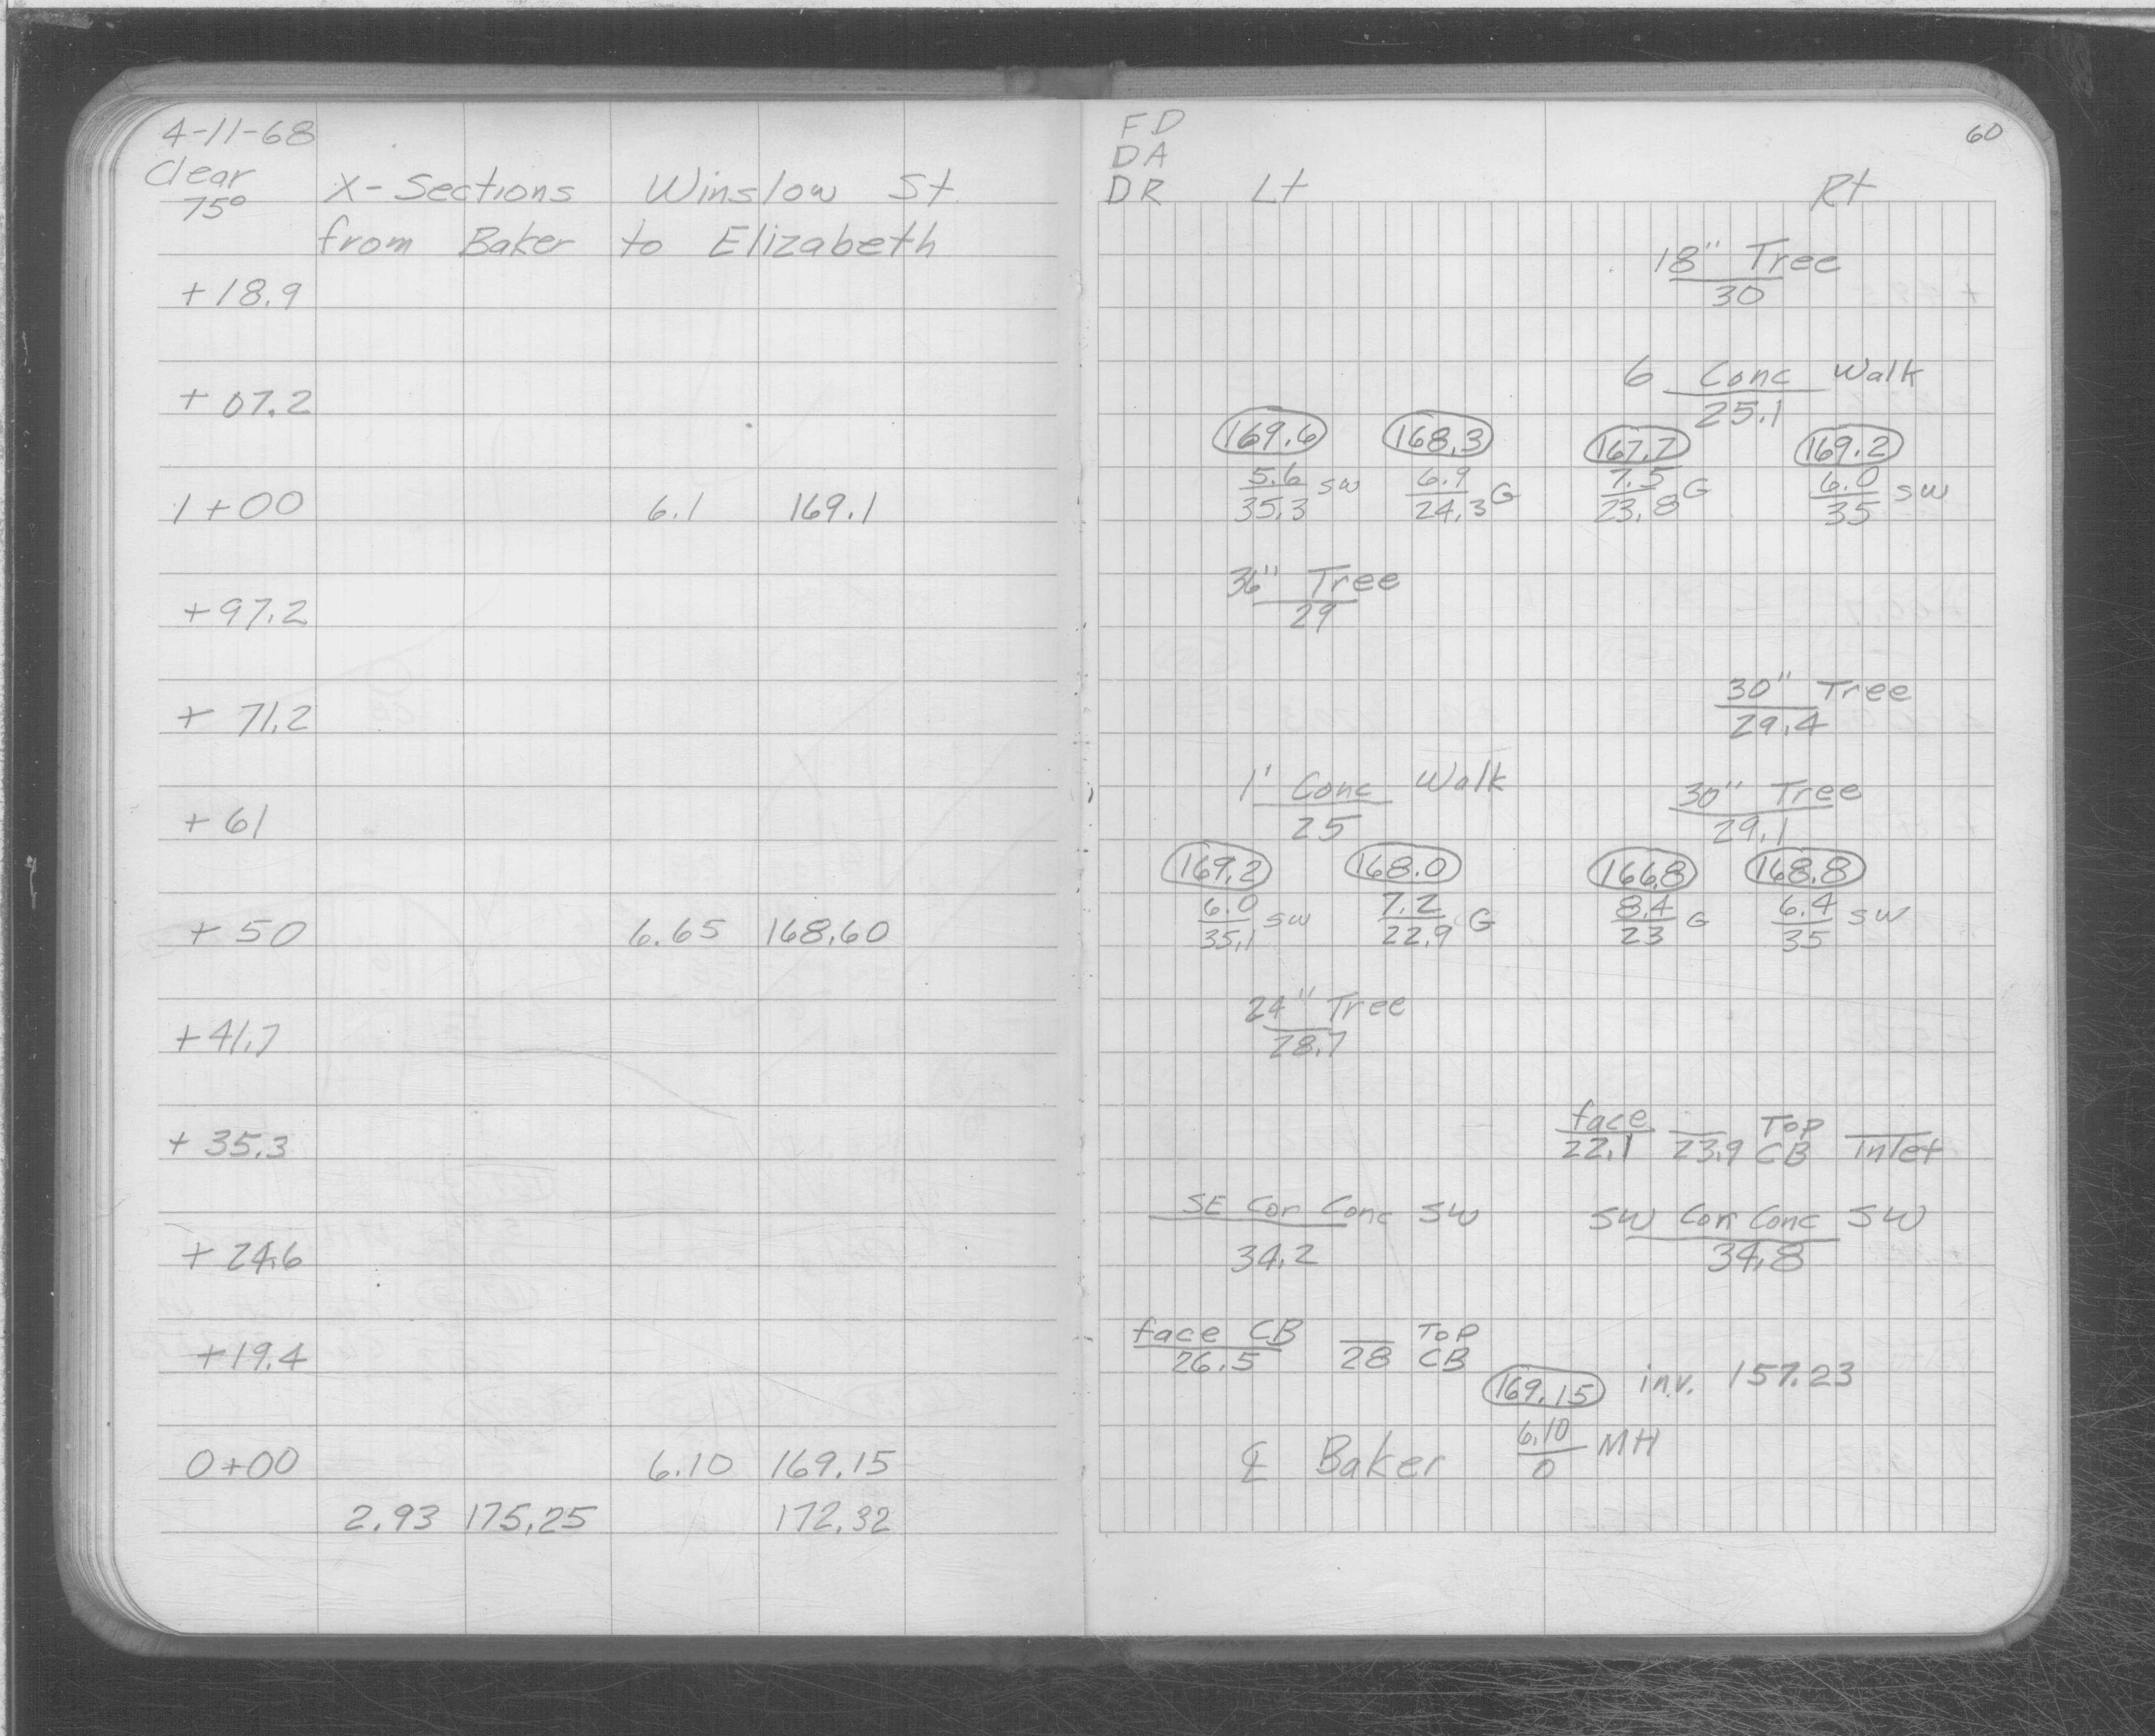 4-11-68
Clear
75°
X-Sections Winslow St
from Baker to Elizabeth
+18.9
+07.2
1+00 6.1 169.1
+97.2
+71.2
+61
+50 6.65 168.60
+41.7
+35.3
+24.6
+19.4
0+00 6.10 169.15
2.93 175.25 172.32
FD
DA
DR Lt Rt
60
18" Tree
30
6 Conc Walk
25.1
169.6 168.3 167.7 169.2
5.6 SW 6.9 G 7.5 G 6.0 SW
35.3 24.3 23.8 35
36" Tree
29
30" Tree
29.4
1' Conc Walk 30" Tree
25 29.1
169.2 168.0 166.8 168.8
6.0 SW 7.2 G 8.4 G 6.4 SW
35.1 22.9 23 35
24" Tree
28.7
face Top
22.1 23.9 CB Inlet
SE Cor Conc SW SW Corr Conc SW
34.2 34.8
face CB Top
26.5 28 CB
169.15 inv. 157.23
℄ Baker 6.10 MH
0